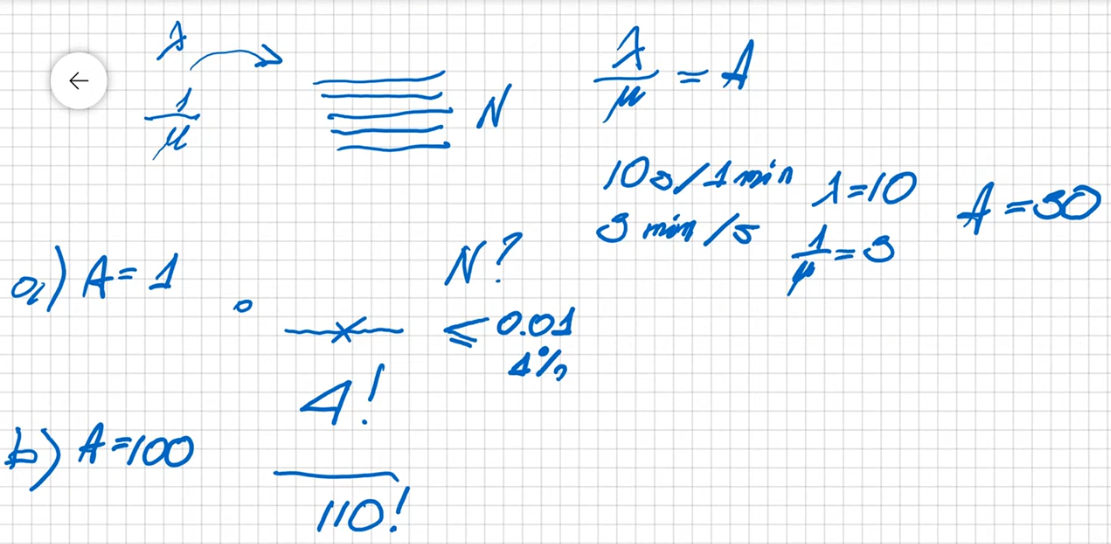 λ
1/μ
N
λ/μ = A
10 s/1 min λ=10
3 min/s 1/μ=3
A=30
N?
a) A=1
≤ 0.01
1%
4!
b) A=100
110!